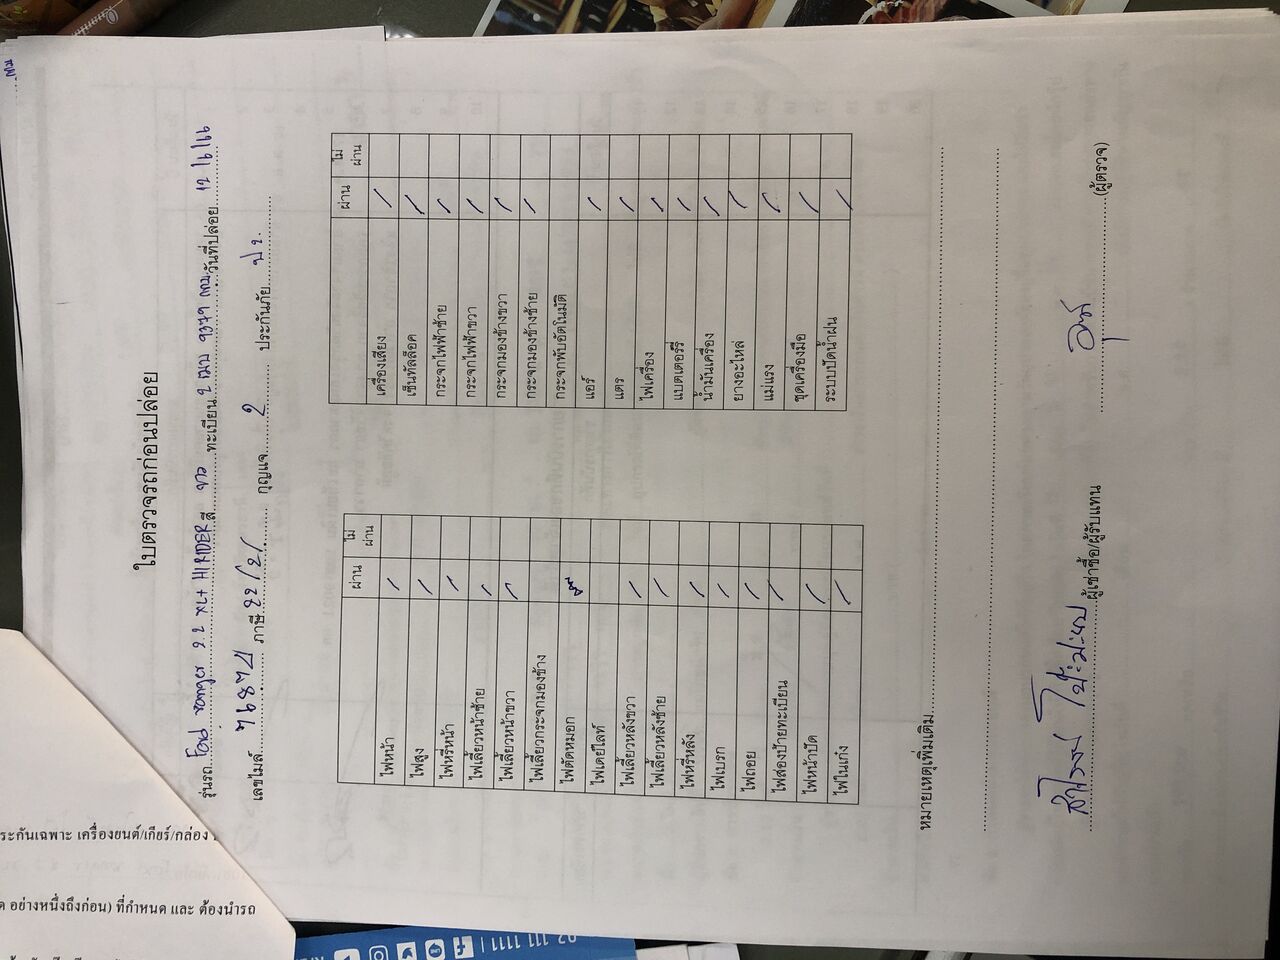 ใบตรวจรถก่อนปล่อย
รุ่นรถ Ford ranger 2.2 XL+ HI RIDER สี ขาว ทะเบียน 2 ฒบ 9379 กทม วันที่ปล่อย 12/6/66
เลขไมล์ ภาษี กุญแจ 2 ประกันภัย
ผ่าน ไม่ผ่าน
ไฟหน้า /
ไฟสูง /
ไฟหรี่หน้า /
ไฟเลี้ยวหน้าซ้าย /
ไฟเลี้ยวหน้าขวา /
ไฟเลี้ยวกระจกมองข้าง
ไฟตัดหมอก
ไฟเดย์ไลท์
ไฟเลี้ยวหลังขวา /
ไฟเลี้ยวหลังซ้าย /
ไฟหรี่หลัง /
ไฟเบรก /
ไฟถอย /
ไฟส่องป้ายทะเบียน /
ไฟหน้าปัด /
ไฟในเก๋ง /
ผ่าน ไม่ผ่าน
เครื่องเสียง /
เซ็นทัลล็อค /
กระจกไฟฟ้าซ้าย /
กระจกไฟฟ้าขวา /
กระจกมองข้างขวา /
กระจกมองข้างซ้าย /
กระจกพับอัตโนมัติ
แอร์ /
แตร /
ไฟเครื่อง /
แบตเตอรรี่ /
น้ำมันเครื่อง /
ยางอะไหล่ /
แม่แรง /
ชุดเครื่องมือ /
ระบบปัดน้ำฝน /
หมายเหตุเพิ่มเติม
ผู้เช่าซื้อ/ผู้รับแทน
(ผู้ตรวจ)
ระกันเฉพาะ เครื่องยนต์/เกียร์/กล่อง
ด อย่างหนึ่งถึงก่อน) ที่กำหนด และ ต้องนำรถ
02 111 1111